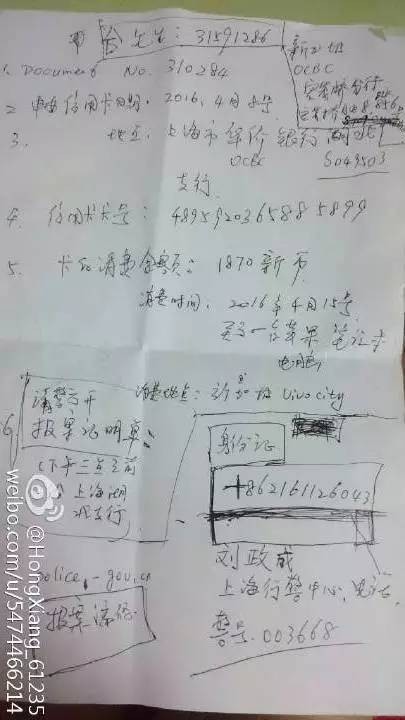 先生：31591286
1. Document No. 310284
2. 申请信用卡日期：2016，4月8号
3. 地点：上海市华侨银行闸北
OCBC
支行
新加坡
OCBC
S049503
4. 信用卡卡号：4895920365885899
5. 卡已消费金额：1870新币
消费时间：2016年4月15号
买了一台苹果笔记本
电脑
消费地点：新加坡 Vivocity
请警方开
报案证明单
（下午三点之前
上海闸
北支行）
身份证
+862161126043
刘政成
上海行警中心，电话
警号：003668
police.gov.cn
报案
@HongXiang_61235
weibo.com/u/5474466214